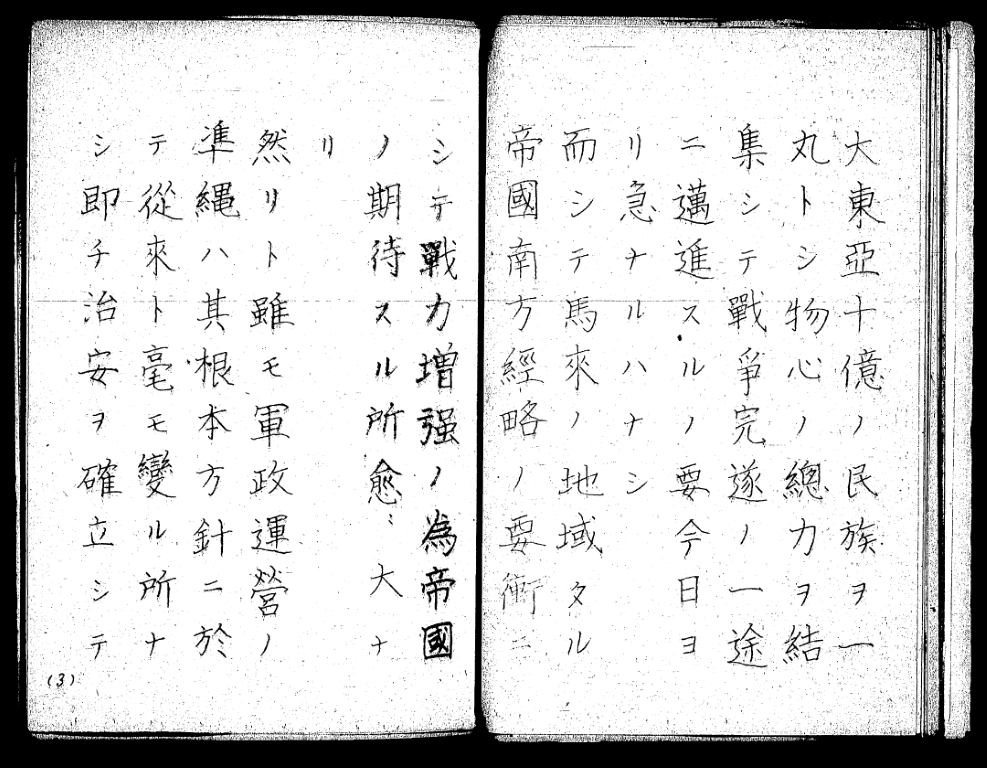 大東亞十億ノ民族ヲ一
丸トシ物心ノ總力ヲ結
集シテ戰爭完遂ノ一途
ニ邁進スルノ要今日ヨ
リ急ナルハナシ
而シテ馬來ノ地域タル
帝國南方經略ノ要衝ニ
シテ戰力增强ノ為帝國
ノ期待スル所愈〻大ナ
リ
然リト雖モ軍政運營ノ
準繩ハ其根本方針ニ於
テ從來ト毫モ變ル所ナ
シ即チ治安ヲ確立シテ
(3)